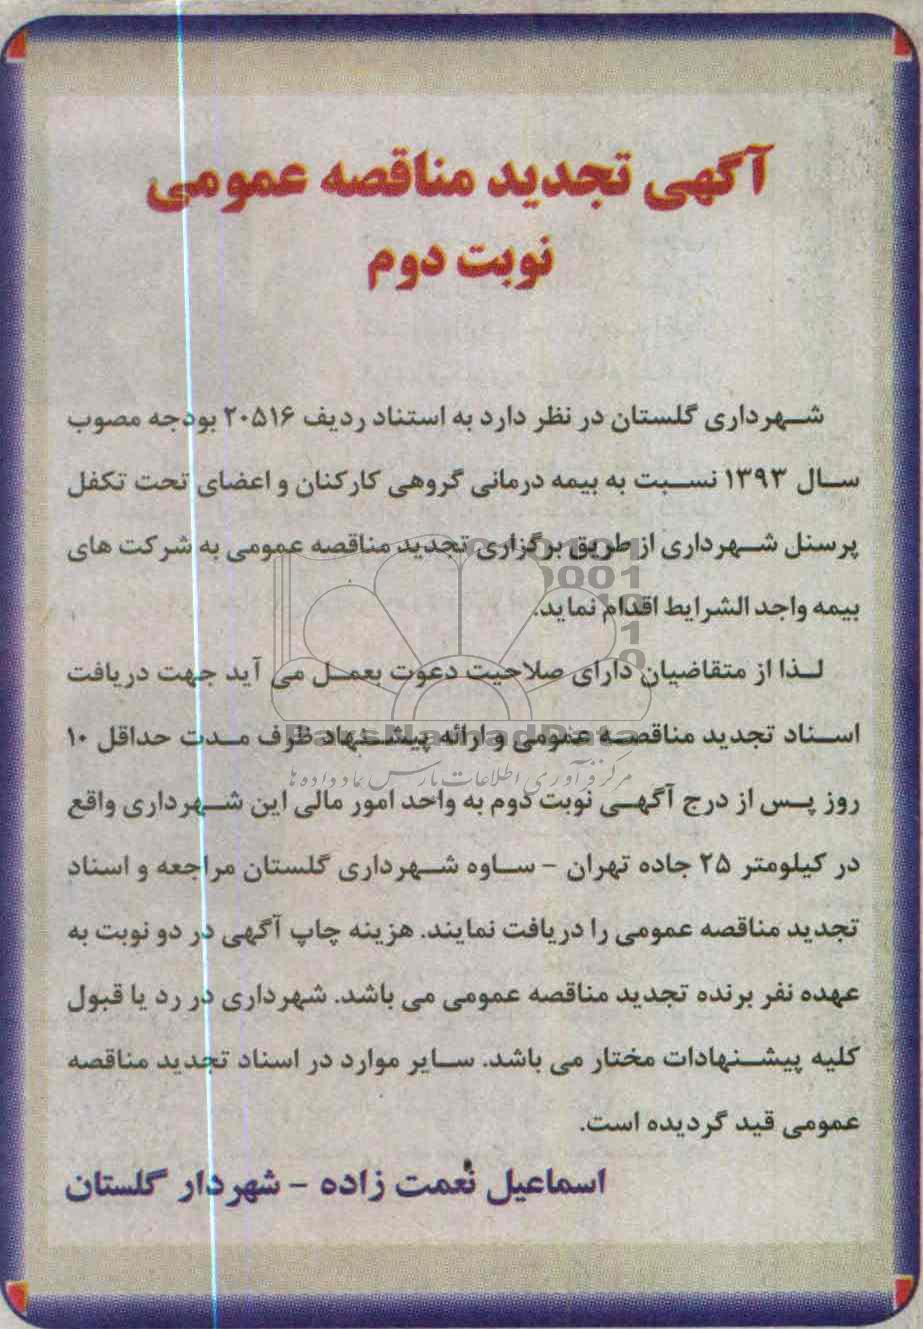 آگهی تجدید مناقصه عمومی
نوبت دوم
شهرداری گلستان در نظر دارد به استناد ردیف ۲۰۵۱۶ بودجه مصوب
سال ۱۳۹۳ نسبت به بیمه درمانی گروهی کارکنان و اعضای تحت تکفل
پرسنل شهرداری از طریق برگزاری تجدید مناقصه عمومی به شرکت های
بیمه واجد الشرایط اقدام نماید.
لذا از متقاضیان دارای صلاحیت دعوت بعمل می آید جهت دریافت
اسناد تجدید مناقصه عمومی و ارائه پیشنهاد ظرف مدت حداقل ۱۰
روز پس از درج آگهی نوبت دوم به واحد امور مالی این شهرداری واقع
در کیلومتر ۲۵ جاده تهران - ساوه شهرداری گلستان مراجعه و اسناد
تجدید مناقصه عمومی را دریافت نمایند. هزینه چاپ آگهی در دو نوبت به
عهده نفر برنده تجدید مناقصه عمومی می باشد. شهرداری در رد یا قبول
کلیه پیشنهادات مختار می باشد. سایر موارد در اسناد تجدید مناقصه
عمومی قید گردیده است.
اسماعیل نعمت زاده - شهردار گلستان
ParsNamadData
مرکز فرآوری اطلاعات پارس نماد داده ها